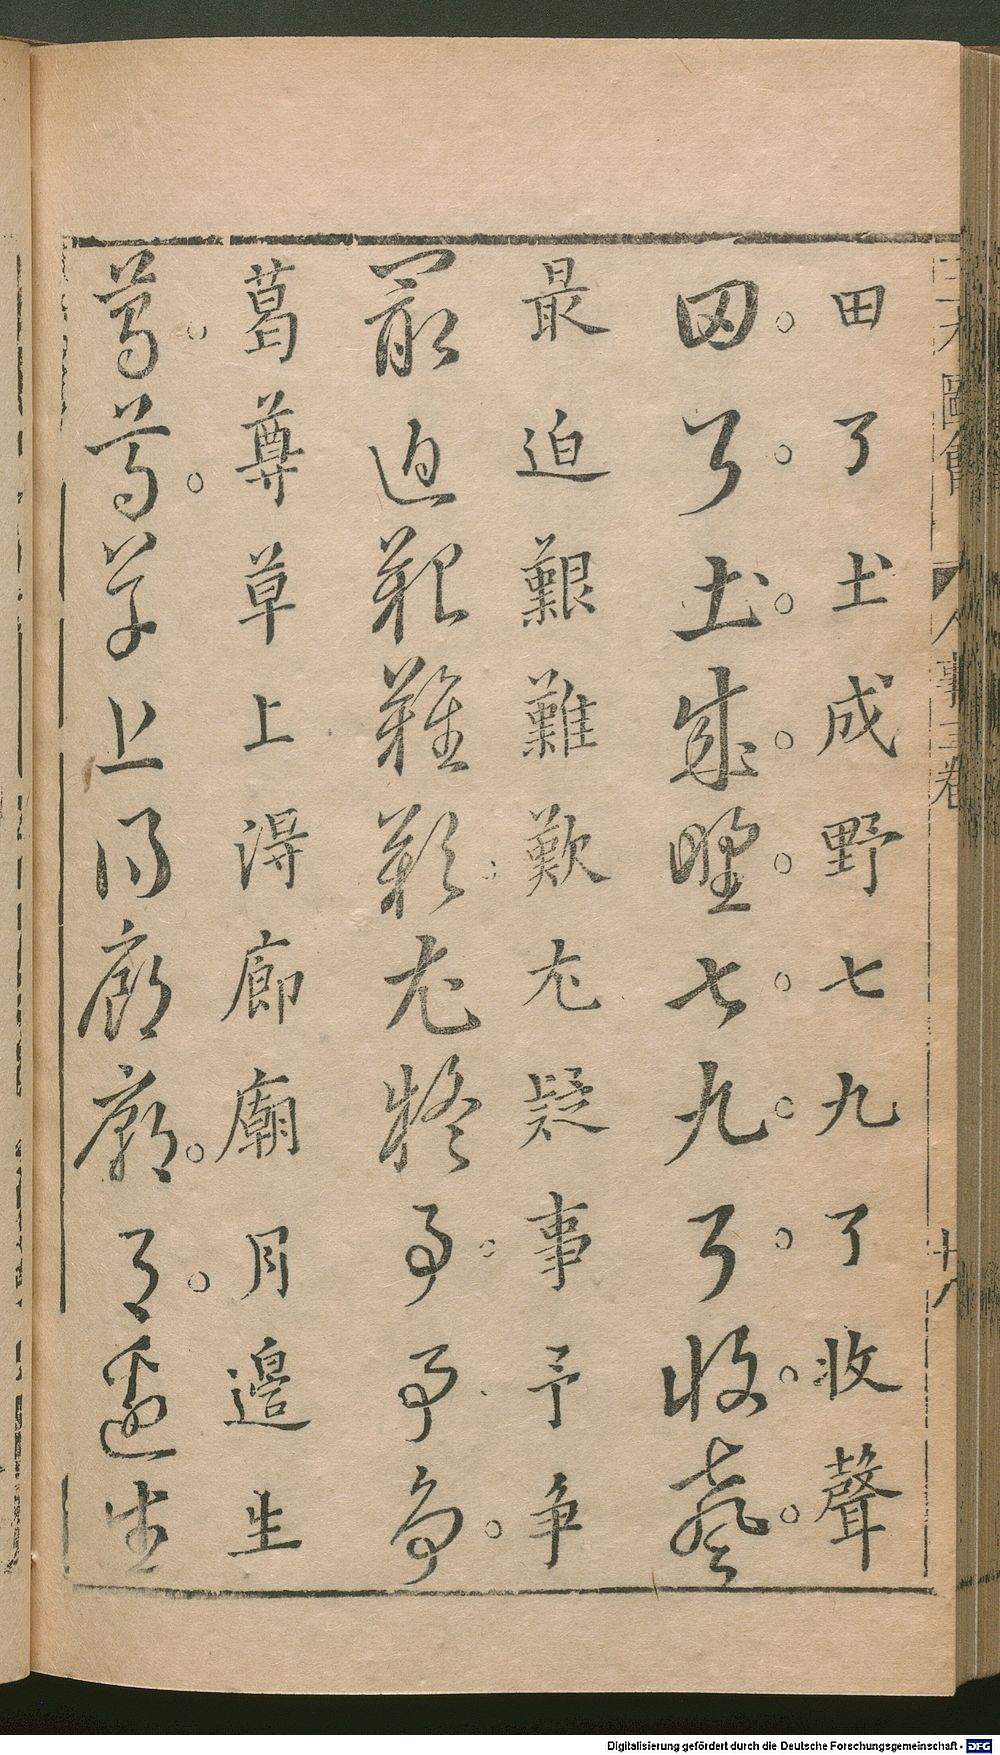 田了土成野七九了收聲
田了土成野七九了收聲
最迫艱難歎尤疑事予争
最迫艱難歎尤疑事予争
葛尊草上淂廊廟月邉生
葛尊草上淂廊廟月邉生
人事三卷
十八
Digitalisierung gefördert durch die Deutsche Forschungsgemeinschaft - DFG